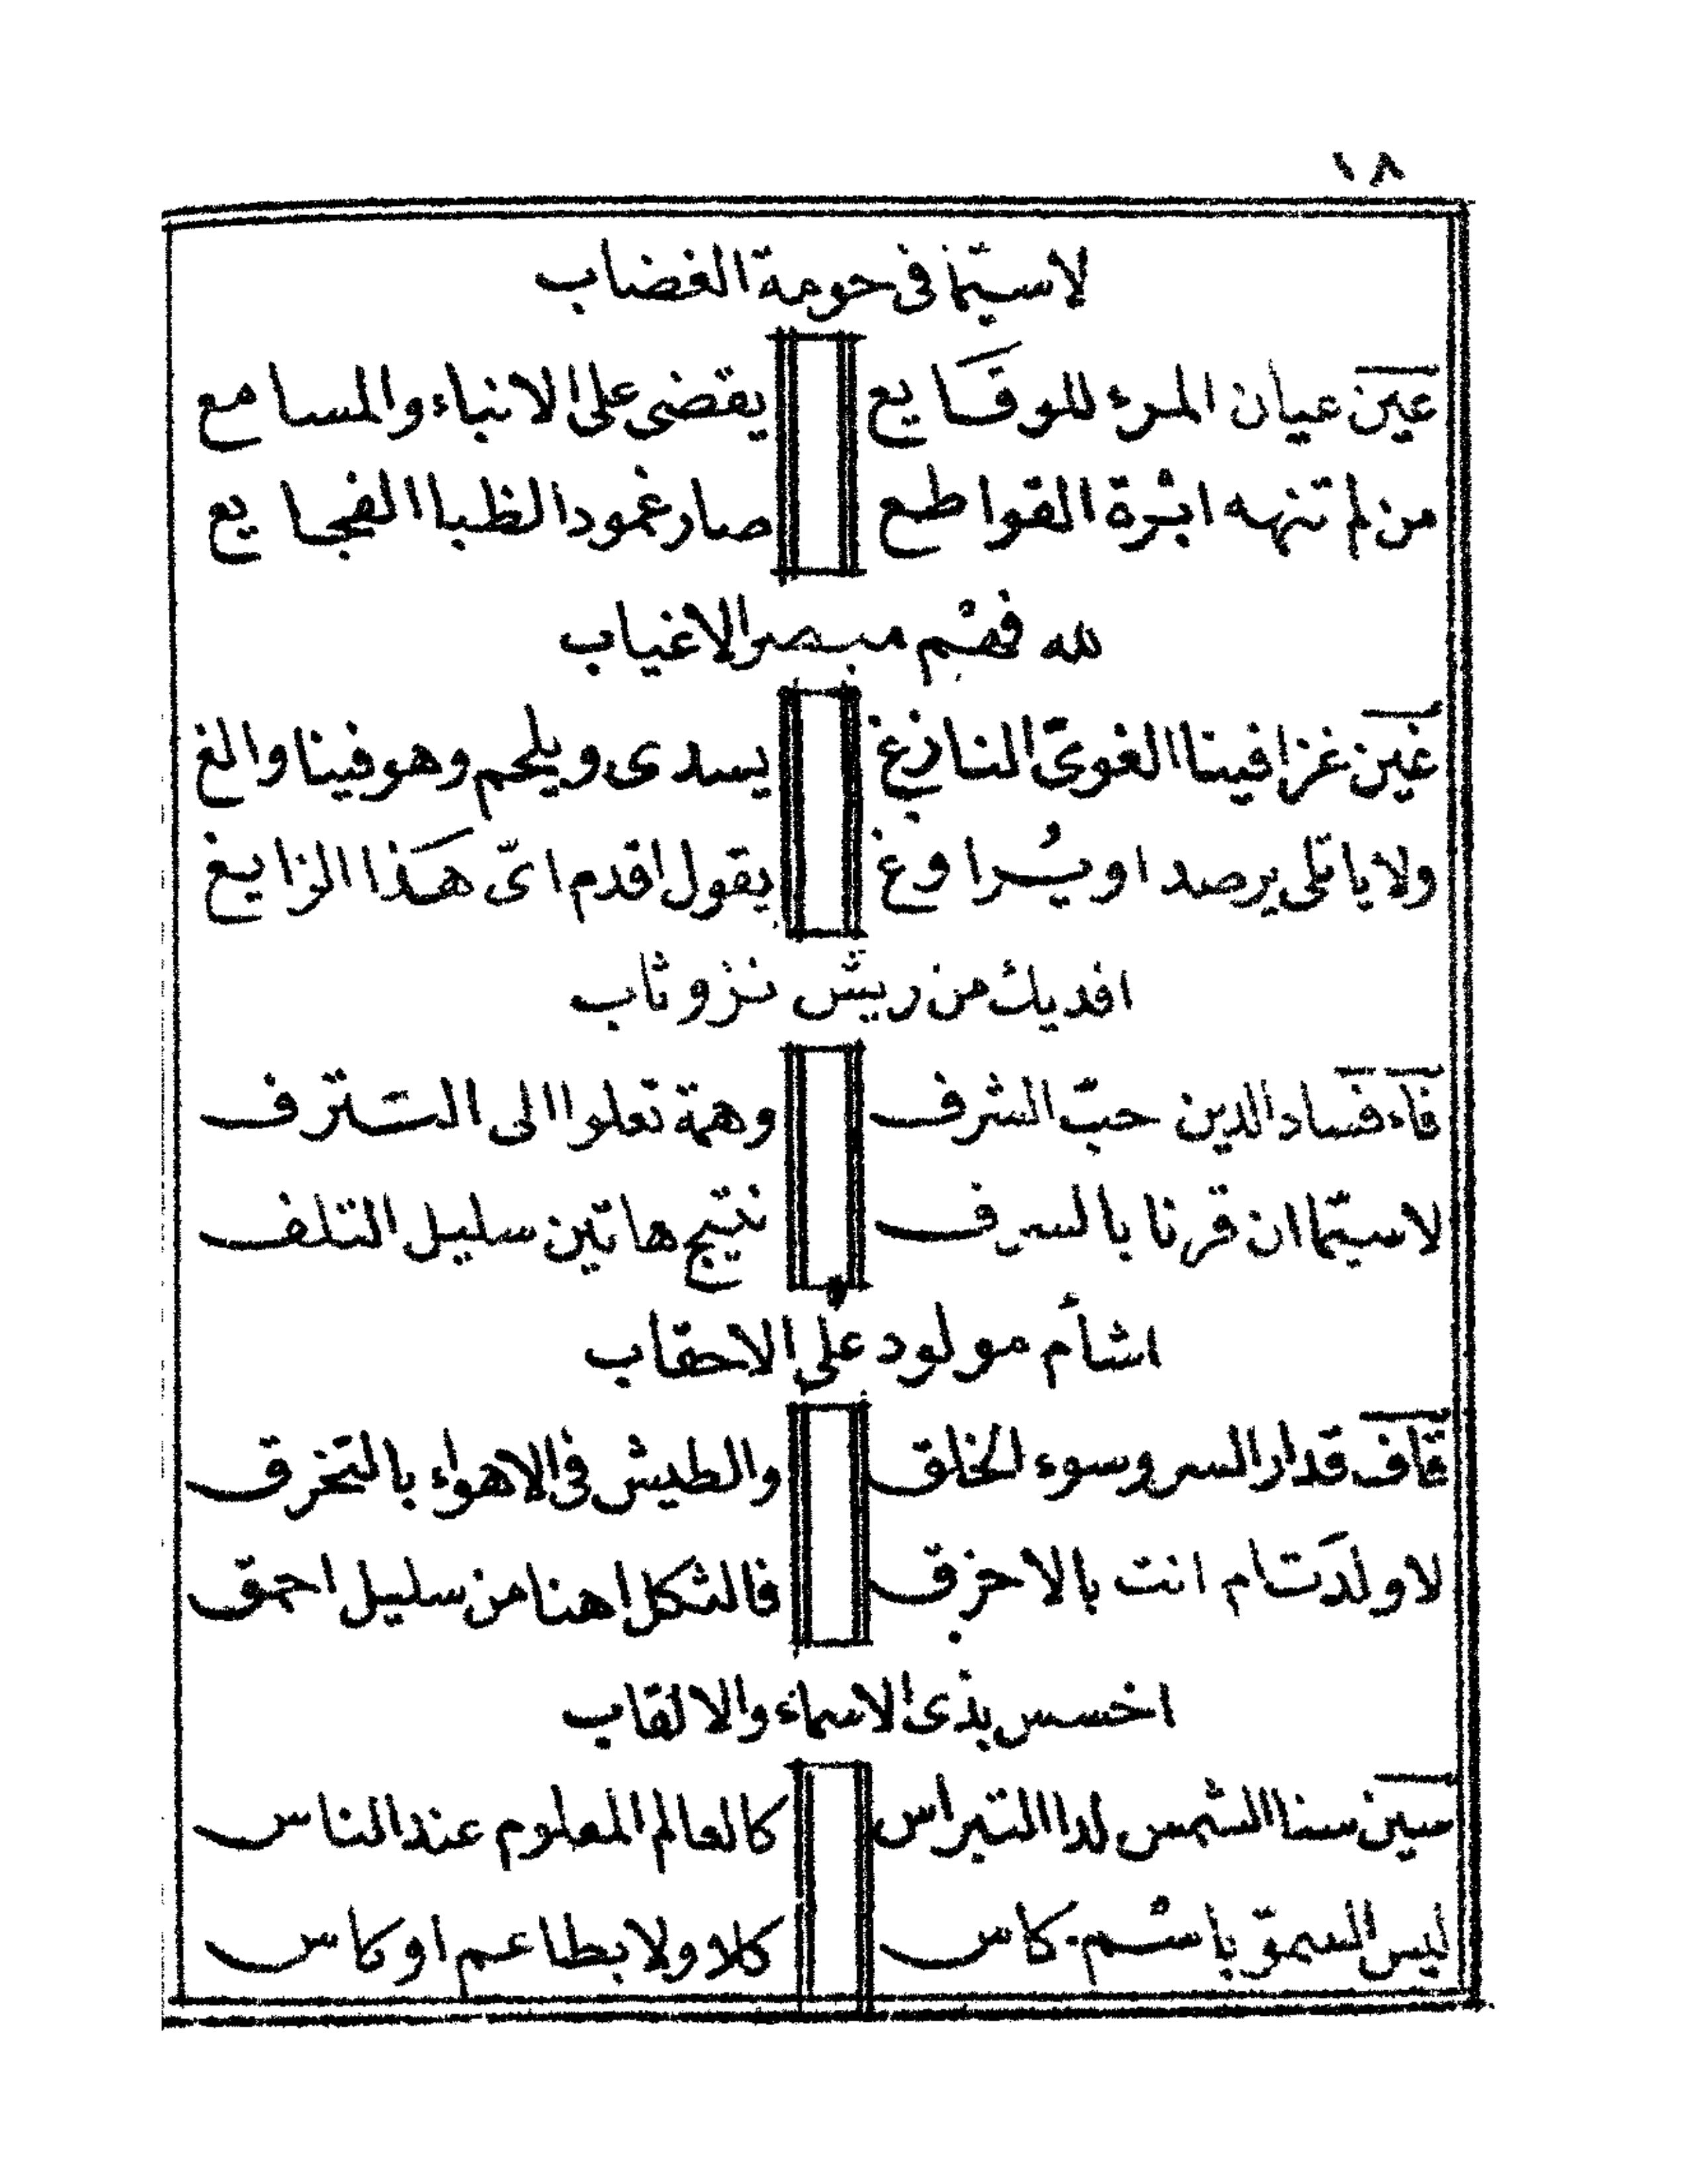 ١٨
لاسيّما فى حومة الغضاب
عين عيان المرء للوقَايع يقضى على الانباء والمسامع
من لم تنهه ابْرة القواطع صار غمود الظبا الفجايع
لله فهْم مبصر الاغياب
غين غزا فينا الغوىّ النازغ يسدى ويلحم وهو فينا والغ
ولا ياتلى يرصد او يُراوغ يقول اقدم اىّ هَذا الزايغ
افديك من ريّس نزو ثاب
فاء فساد الدين حبّ الشرف وهمة تعلوا الى الترف
لاسيّما ان قرنا بالسرف نتيج هاتين سليل التلف
اشأم مولود على الاحقاب
قاف قدار السر وسوء الخلق والطيش فى الاهواء بالتخرق
لا ولدَت ام انت بالاخرق فالثكل اهنا من سليل احمق
اخسس بذى الاسماء والالقاب
سين سنا الشمس لدا النبراس كالعالم المعلوم عند الناس
ليس السموّ باسْم كاس كلا ولا بطاعم او كاس